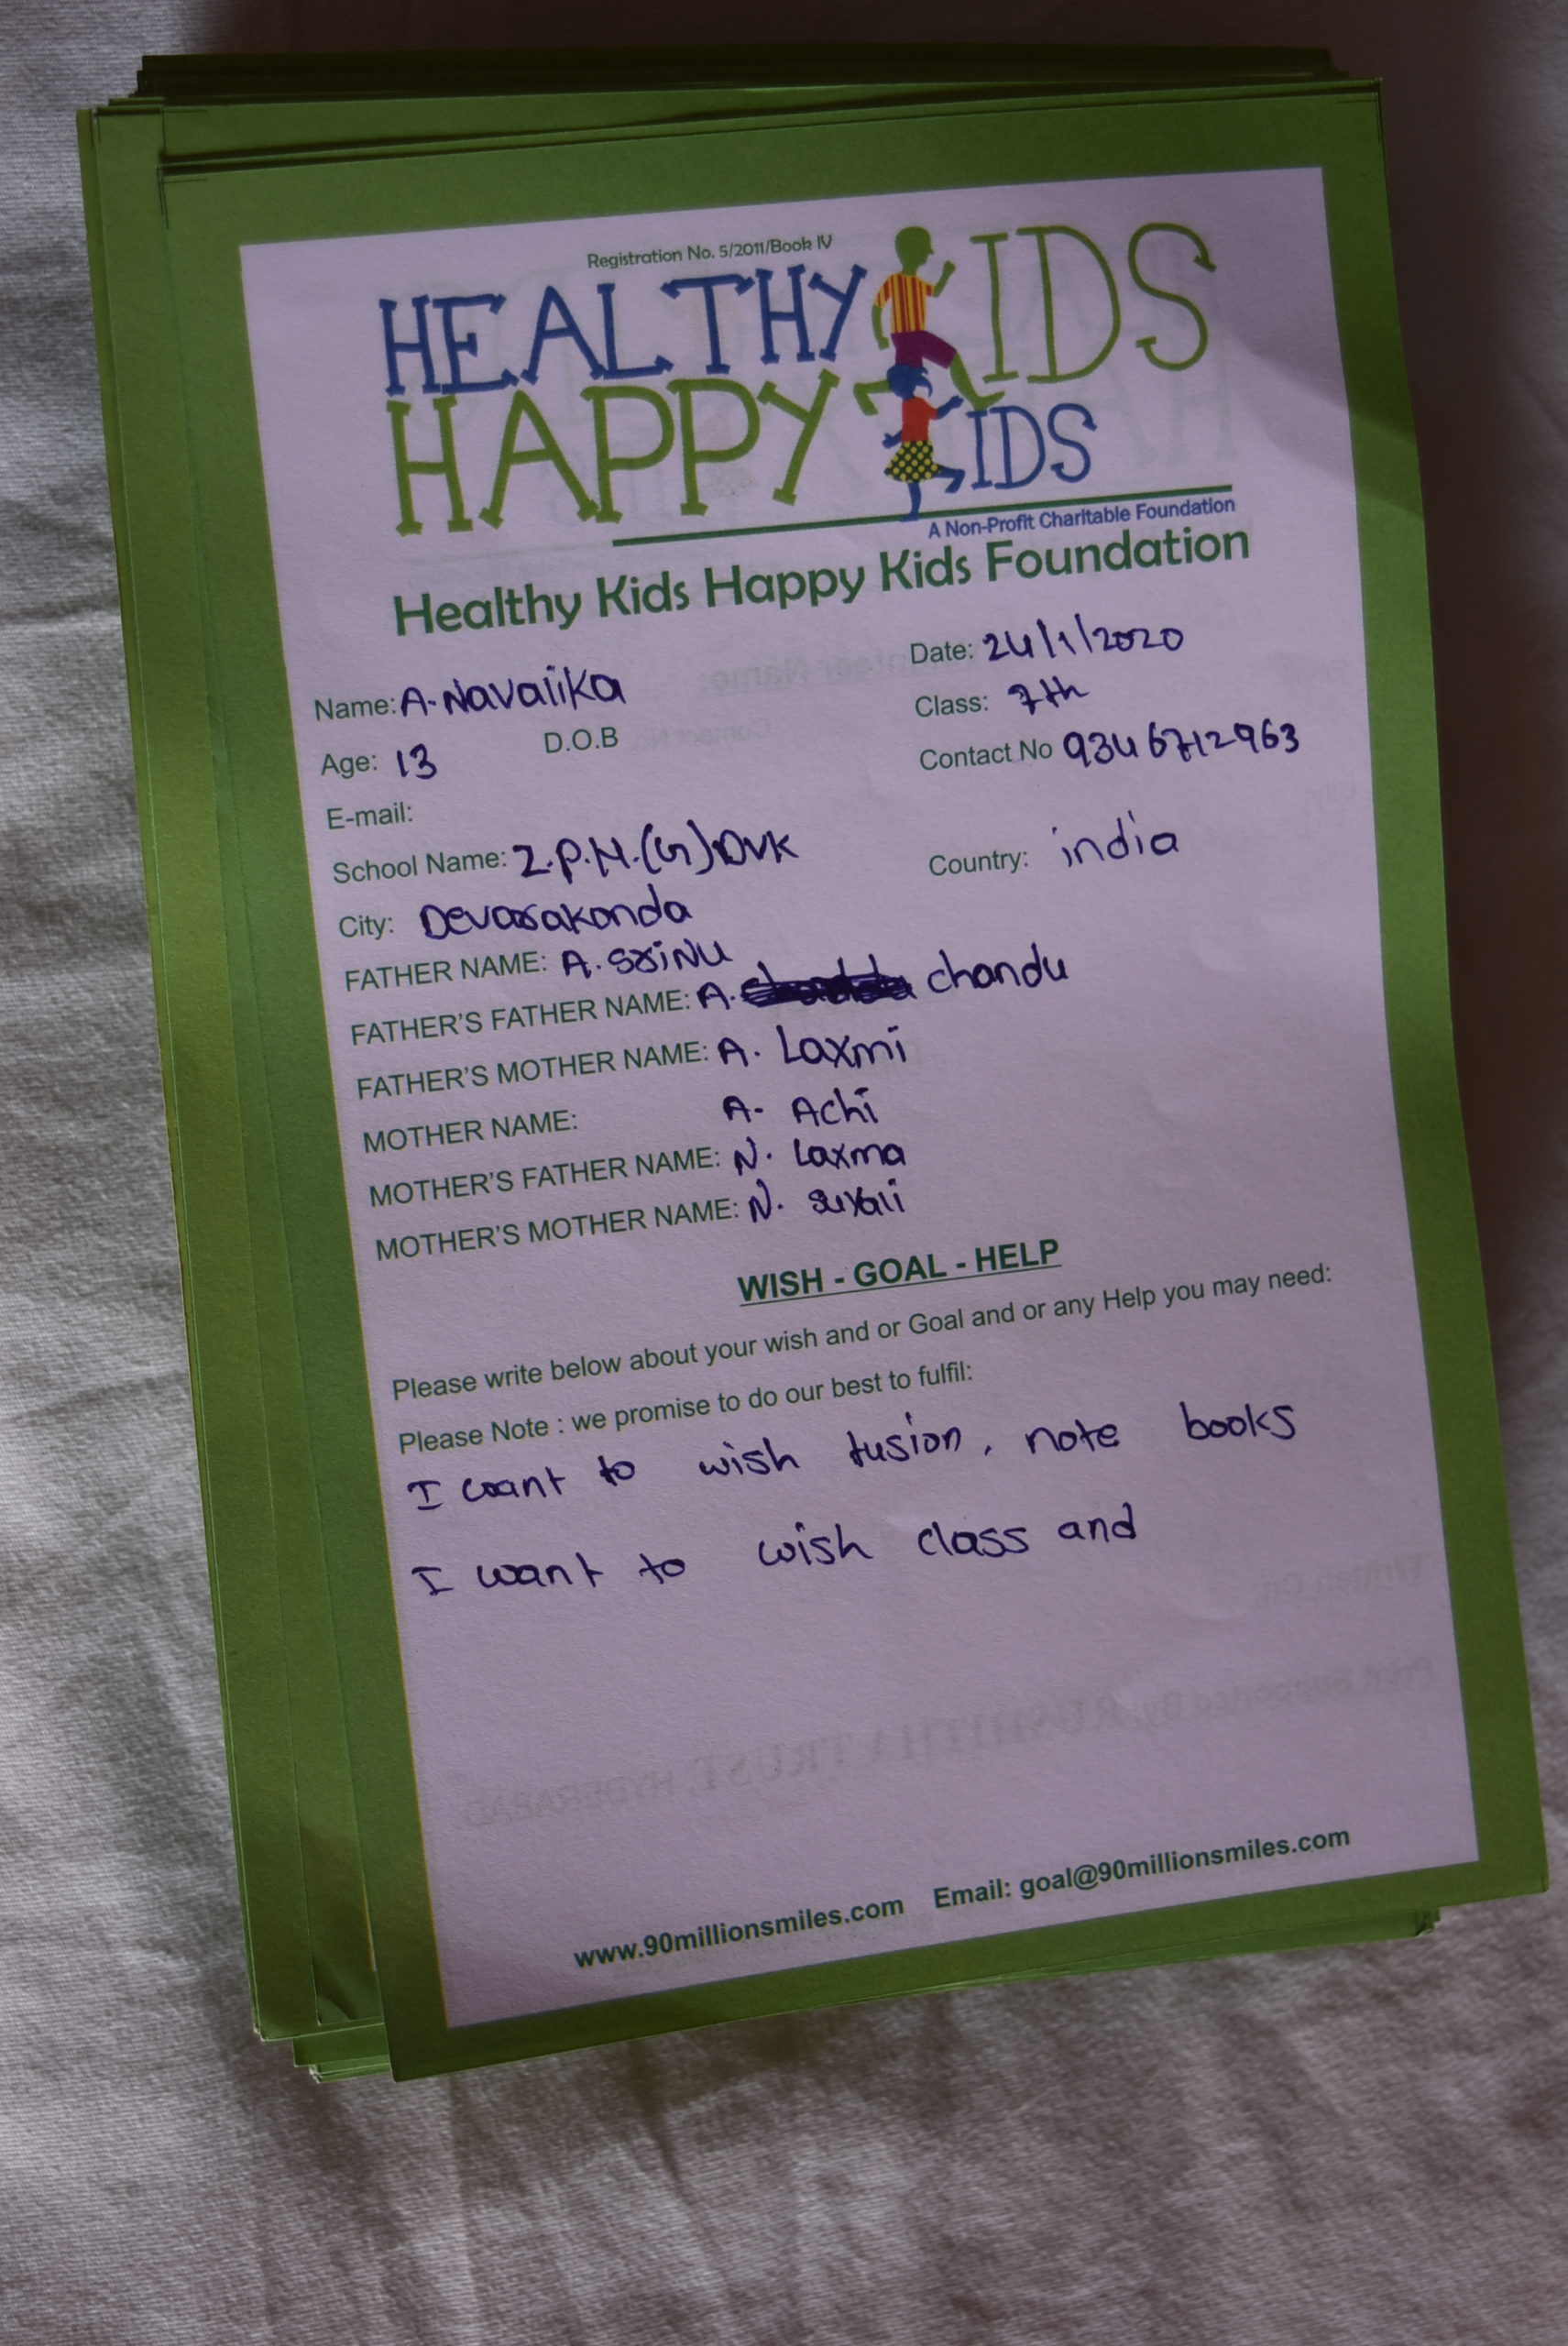 Registration No. 5/2011/Book IV
HEALTHY KIDS
HAPPY KIDS
A Non-Profit Charitable Foundation
Healthy Kids Happy Kids Foundation
Date: 24/1/2020
Name: A. Navaiika
Class: 7th
Age: 13 D.O.B
Contact No 9346712963
E-mail:
School Name: Z.P.H.(G) DVK
Country: india
City: Devarakonda
FATHER NAME: A. SriNU
FATHER'S FATHER NAME: A. chandu
FATHER'S MOTHER NAME: A. Laxmi
MOTHER NAME: A- Achi
MOTHER'S FATHER NAME: N. Laxma
MOTHER'S MOTHER NAME: N.
WISH - GOAL - HELP
Please write below about your wish and or Goal and or any Help you may need:
Please Note : we promise to do our best to fulfil:
I want to wish tusion, note books
I want to wish class and
www.90millionsmiles.com Email: goal@90millionsmiles.com